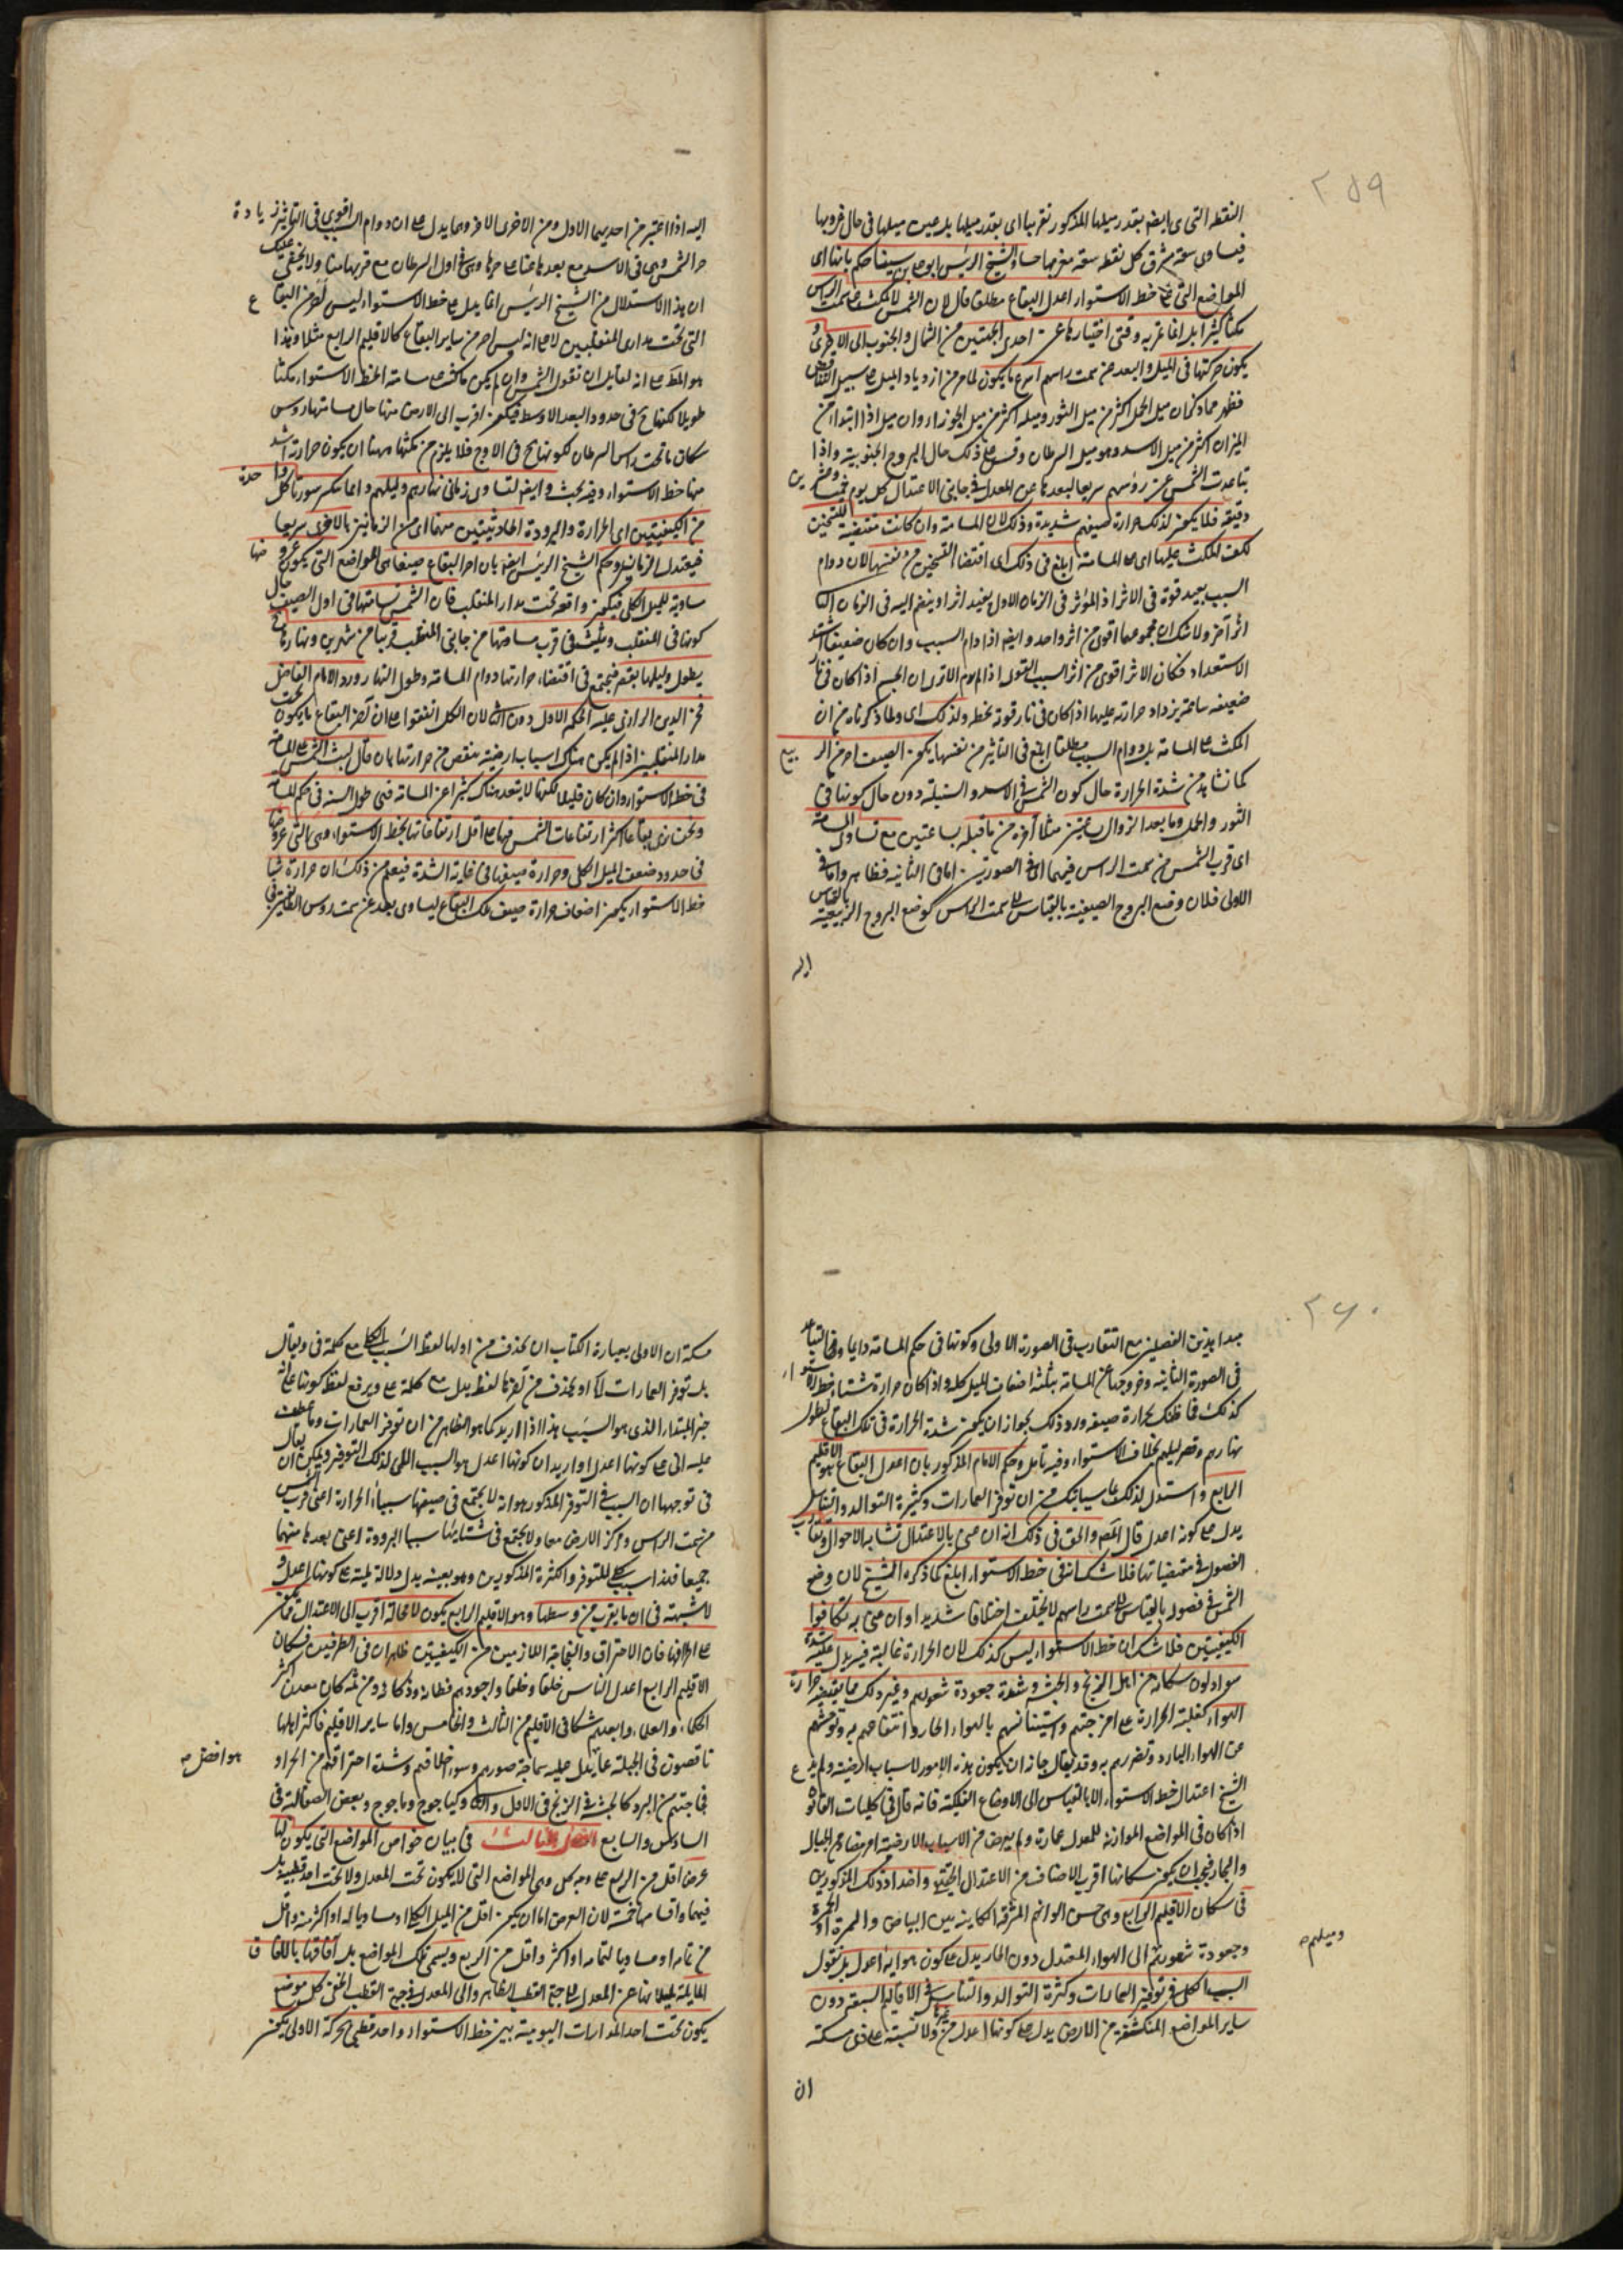 ٢٥٩
النقطة التى هى بايضه بقدر ميلها المذكور تقريبا اى بقدر ميلها بل عين ميلها فى حال غروبها
فيساوى سعة مشرق كل نقطه سعة مغربها حسا والشيخ الرئيس ابو على بن سينا حكم بانها اى
المواضع التى على خط الاستواء اعدل البقاع مطلقا قال لان الشمس لا تمكث على سمت الراس
مكثا كثيرا بل انما تمر به وقتى اجتيازها عن احدى الجهتين من الشمال والجنوب الى الاخرى و
يكون حركتها فى الميل والبعد عن سمت راسهم اسرع ما يكون لما مر من ازدياد الميل على سبيل التناقص
فظهر مما ذكر ان ميل الحمل اكثر من ميل الثور وميله اكثر من ميل الجوزاء وان ميل اذا ابتدا من
الميزان اكثر من ميل الاسد وهو ميل السرطان وقس على ذلك حال البروج الجنوبية واذا
تباعدت الشمس عن رؤسهم سريعا لبعدها عن المعدل فى جانبى الاعتدال كل يوم خمسا وعشرين
دقيقة فلا يكون لذلك حرارة صيفهم شديدة وذلك لان المسامتة وان كانت مقتضية للتسخين
لكن المكث عليها اى على المسامتة ابلغ فى ذلك اى اقتضاء التسخين من نفسها لان دوام
السبب يفيد قوة فى الاثر اذ المؤثر فى الزمان الاول يفيد اثرا وينضم اليه فى الزمان الثانى
اثر اخر ولا شك ان مجموعهما اقوى من اثر واحد وايضا اذا دام السبب وان كان ضعيفا اشتد
الاستعداد فكان الاثر اقوى من اثر السبب القوى اذا لم يدم الا ترى ان الجسم اذا كان فى نار
ضعيفة ساعة يزداد حرارته عليها اذا كان فى نار قوية لحظة ولذلك اى ولما ذكرناه من ان
المكث على المسامتة بل دوام السبب مطلقا ابلغ فى التاثير من نفسها يكون الصيف احر من الربيع
كما نشاهد من شدة الحرارة حال كون الشمس فى الاسد والسنبلة دون حال كونها فى
الثور والحمل وما بعد الزوال بساعتين مثلا احر من ما قبله بساعتين مع تساوى المسامتة
اى قرب الشمس من سمت الراس فيهما اى فى الصورتين اما فى الثانية فظاهر واما فى
الاولى فلان وضع البروج الصيفية بالقياس الى سمت الراس كوضع البروج الربيعية بالقياس
اليه
اليه اذا اعتبر من احديهما الاول ومن الاخرى الاخر ومما يدل على ان دوام السبب اقوى فى التاثير زيادة
حر الشمس وهى فى الاسد مع بعدها عنا على حرها وهى فى اول السرطان مع قربها منا ولا يخفى عليك
ان هذا الاستدلال من الشيخ الرئيس انما يدل على خط الاستواء ليس احر من البقاع
التى تحت مدارى المنقلبين لا على انه ليس احر من ساير البقاع كالاقليم الرابع مثلا وهذا
هو المط على انه لقايل ان نقول الشمس وان لم يكن مكثت على مسامتة الخط الاستواء مكثا
طويلا لكنها فى حدود البعد الاوسط فيكون اقرب الى الارض منها حال مسامتتها رؤس
سكان ما تحت راس السرطان لكونها ح فى الاوج فلا يلزم من مكثها ههنا ان يكون حرارته اشد
منها خط الاستواء وفيه بحث وايضا لتساوى زمانى نهارهم وليلهم دائما تكسر سورتا كل واحدة
من الكيفيتين اى الحرارة والبرودة الحادثتين منهما اى من الزمانين بالاخرى سريعا
فيعتدل الزمان وحكم الشيخ الرئيس ايضا بان احر البقاع صيفا هى المواضع التى يكون عروضها
مساوية للميل الكلى فيكون واقعة تحت مدار المنقلب فان الشمس تسامتها فى اول الصيف حال
كونها فى المنقلب وتلبث فى قرب مسامتتها من جانبى المنقلب قريبا من شهرين ونهارها ح
يطول وليلها يقصر فيجتمع فى اقتضاء حرارتها دوام المسامتة وطول النهار ورد الامام الفاضل
فخر الدين الرازى عليه الحكم الاول دون الثانى لان الكل اتفقوا على ان احر البقاع ما يكون تحت
مدار المنقلبين اذا لم يكن هناك اسباب ارضية ينقص من حرارتها بان قال لبث الشمس على المسامتة
فى خط الاستواء وان كان قليلا لكنها لا يتعد هناك كثيرا عن المسامتة فهى طول السنة فى حكم المسامتة
ونحن نرى بقاعا اكثر ارتفاعات الشمس فيها على اقل ارتفاعاتها بخط الاستواء وهى التى عروضها
فى حدود ضعف الميل الكلى وحرارة صيفها فى غاية الشدة فيعلم من ذلك ان حرارة شتاء
خط الاستواء يكون اضعاف حرارة صيف تلك البقاع ليساوى بعد عن سمت رؤس الطايفتين فى
٢٦٠
مبدا هذين الفصلين مع التقارب فى الصورة الاولى وكونها فى حكم المسامتة دايما وفى التباعد
فى الصورة الثانية وخروجها عن المسامتة بثلثة اضعاف الميل كله واذا كان حرارة شتاء خط الاستواء
كذلك فما ظنك بحرارة صيفه ورد ذلك بجواز ان يكون شدة الحرارة فى تلك البقاع لطول
نهارهم وقصر ليلهم بخلاف الاستواء وفيه تامل وحكم الامام المذكور بان اعدل البقاع هو الاقليم
الرابع واستدل لذلك بما سياتيك من ان توفر العمارات وكثرة التوالد والتناسل
يدل على كونه اعدل قال المص والحق فى ذلك انه ان عنى بالاعتدال تشابه الاحوال وتقارب
الفصول فى مقتضياتها فلا شك انه فى خط الاستواء ابلغ كما ذكره الشيخ لان وضع
الشمس فى فصول بالقياس الى سمت راسهم لا يختلف اختلافا شديدا وان عنى به تكافوا
الكيفيتين فلا شك ان خط الاستواء ليس كذلك لان الحرارة غالبة فيه يدل عليه شدة
سواد لون سكانه من اهل الزنج والحبشة وشدة جعودة شعورهم وغير ذلك مما يقتضيه حرارة
الهواء كغلبة الحرارة على امزجتهم واستيناسهم بالهواء الحار وانتفاعهم به وتوحشهم
عن الهواء البارد وتضررهم به وقد يقال جاز ان يكون هذه الامور لاسباب ارضية ولم يدع
الشيخ اعتدال خط الاستواء الا بالقياس الى الاوضاع الفلكية فانه قال فى كليات القانون
اذا كان فى المواضع الموازنة للمعدل عمارة ولم يعرض من الاسباب الارضية امر مضاد من الجبال
والبحار فيجب ان يكون سكانها اقرب الاصناف من الاعتدال الحقيقى واضداد ذلك المذكورين
فى سكان الاقليم الرابع وهى حسن الوانهم المشرقة الكاينة بين البياض والحمرة
وجعودة شعورهم الى الهواء المعتدل دون الحار يدل على كون هوايه اعدل بل نقول
السبب الكلى فى توفير العمارات وكثرة التوالد والتناسل فى الاقاليم السبعة دون
ساير المواضع المنكشفة من الارض يدل على كونها اعدل من غيرها ولا شبهة على ذى مسكة
وميلهم
ان
مسكة ان الاولى بعبارة الكتاب ان يحذف من اولها لفظ السبب الكلى مع كلمة فى ويقال
بل توفر العمارات اه او يحذف من اخرها لفظ يدل مع كلمة على ويرفع لفظ كونها على انه
خبر المبتدا الذى هو السبب هذا اذا اريد كما هو الظاهر من ان توفر العمارات وما عطف
عليه الى على كونها اعدل او اريد ان كونها اعدل هو السبب اللمى لذلك التوفير ويمكن ان يقال
فى توجيهها ان السبب فى التوفر المذكور هو انه لا يجتمع فى صيفها سببا الحرارة اعنى قرب الشمس
من سمت الراس ومركز الارض معا ولا يجتمع فى شتائها سببا البرودة اعنى بعدها منهما
جميعا فهذا سبب كلى للتوفر والكثرة المذكورين وهو بعينه يدل دلالة لمية على كونها اعدل و
لا شبهة فى ان ما يقرب من وسطها وهو الاقليم الرابع يكون لا محالة اقرب الى الاعتدال مما يكون
على اطرافها فان الاحتراق والفجاجة اللازمين من الكيفيتين ظاهران فى الطرفين فسكان
الاقليم الرابع اعدل الناس خلقا وخلقا واجودهم فطانة وذكاء ومن ثمه كان معدن اكثر
الحكماء والعلماء وابعدهم سكانى الاقليم من الثالث والخامس واما ساير الاقليم فاكثر اهلها
ناقصون فى الجبلة عما يدل عليه سماجة صورهم وسوء اخلاقهم وشدة احتراقهم من الحر او
فجاجتهم من البرد كالحبشة والزنج فى الاول والثانى وكياجوج وماجوج وبعض الصقالبة فى
السادس والسابع الفصل الثالث فى بيان خواص المواضع التى يكون لها
عرض اقل من الربع على وجه كلى وهى المواضع التى لا يكون تحت المعدل ولا تحت احد قطبيه بل
فيهما واقسامها خمسة لان العرض اما ان يكون اقل من الميل الكلى او مساويا له او اكثر منه واقل
من تمامه او مساويا لتمامه او اكثر واقل من الربع ويسمى تلك المواضع بل افاقها بالافاق
المايلة لميلانها عن المعدل الى جهة القطب الظاهر والى المعدل فى جهة القطب الخفى كل موضع
يكون تحت احد المدارات اليومية بين خط الاستواء واحد قطبى الحركة الاولى يكون
هو افضل